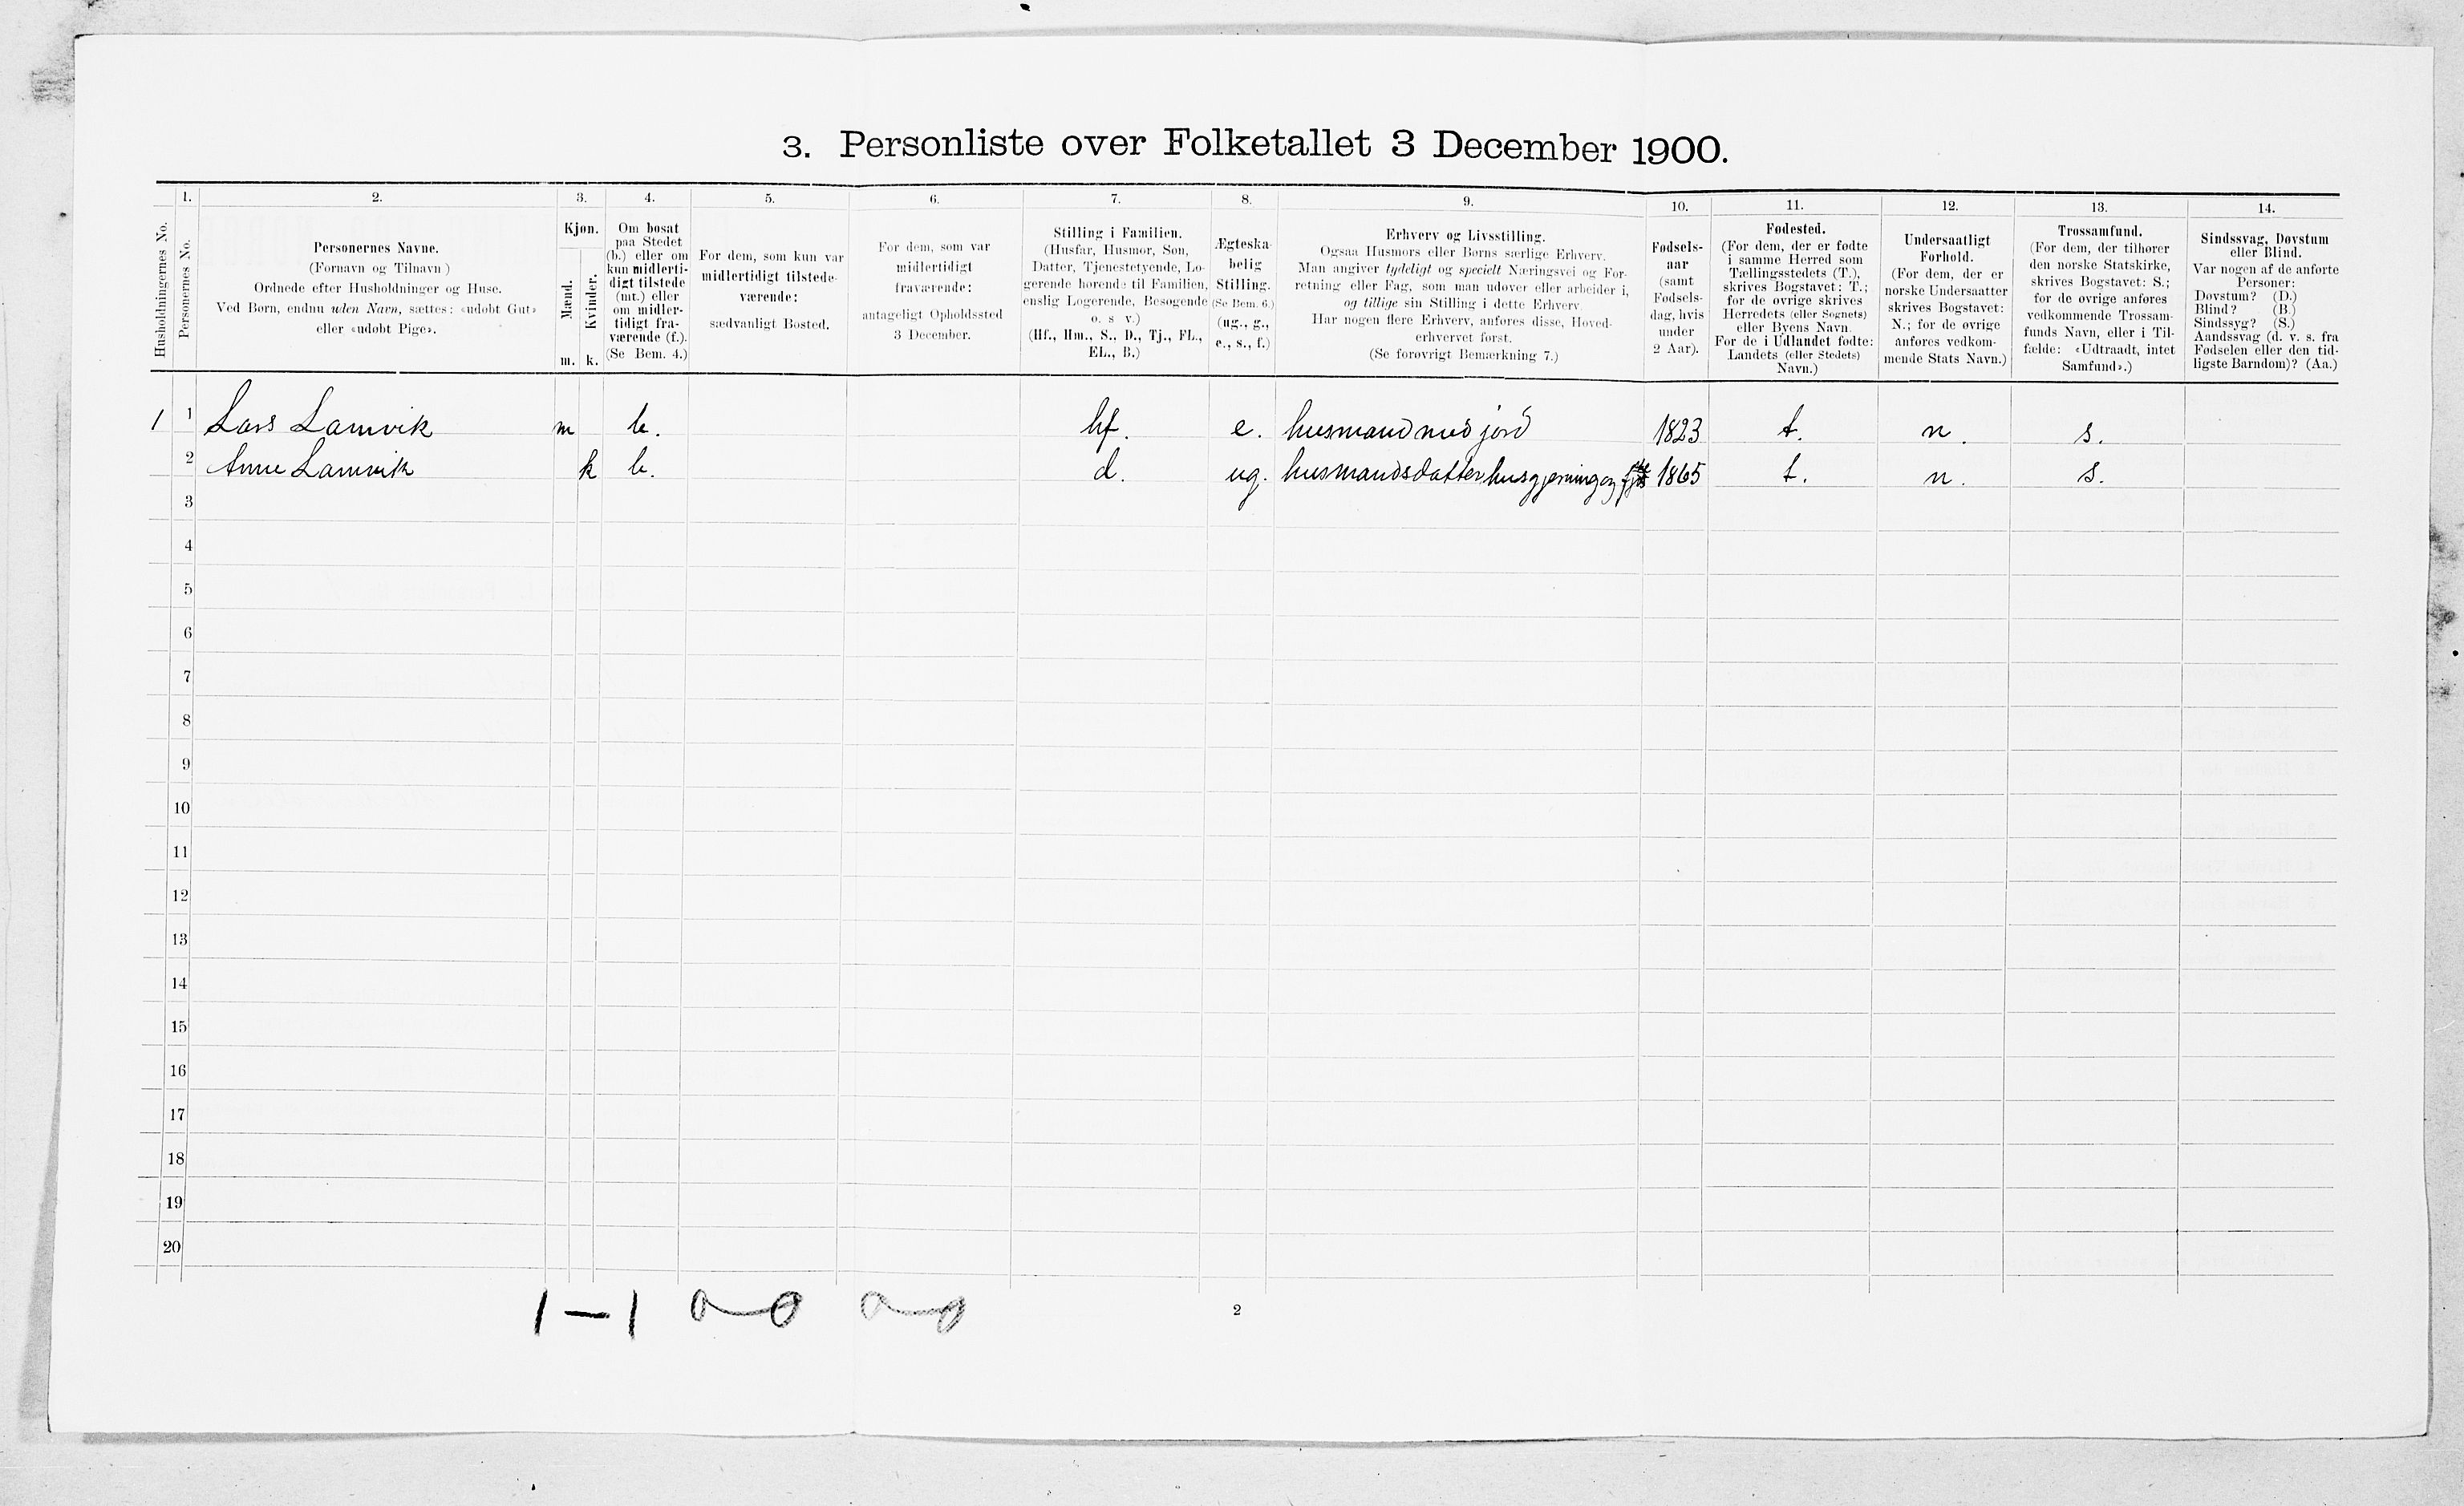 3. Personliste over Folketallet 3 December 1900.
Husholdningernes No.
1.
Personernes No.
2.
Personernes Navne.
(Fornavn og Tilnavn.)
Ordnede efter Husholdninger og Huse.
Ved Børn, endnu uden Navn, sættes: «udøbt Gut»
eller «udøbt Pige».
3.
Kjøn.
Mænd.
Kvinder.
m. k.
4.
Om bosat
paa Stedet
(b.) eller om
kun midlerti-
digt tilstede
(mt.) eller
om midler-
tidigt fra-
værende (f.).
(Se Bem. 4.)
5.
For dem, som kun var
midlertidigt tilstede-
værende:
sædvanligt Bosted.
6.
For dem, som var
midlertidigt
fraværende:
antageligt Opholdssted
3 December.
7.
Stilling i Familien.
(Husfar, Husmor, Søn,
Datter, Tjenestetyende, Lo-
gerende hørende til Familien,
enslig Logerende, Besøgende
o. s. v.)
(Hf., Hm., S., D., Tj., FL.,
EL., B.)
8.
Ægteska-
belig
Stilling.
(Se Bem. 6.)
(ug., g.,
e., s., f.)
9.
Erhverv og Livsstilling.
Ogsaa Husmors eller Børns særlige Erhverv.
Man angiver tydeligt og specielt Næringsvei og For-
retning eller Fag, som man udøver eller arbeider i,
og tillige sin Stilling i dette Erhverv.
Har nogen flere Erhverv, anføres disse, Hoved-
erhvervet først.
(Se forøvrigt Bemærkning 7.)
10.
Fødsels-
aar
(samt
Fødsels-
dag, hvis
under
2 Aar).
11.
Fødested.
(For dem, der er fødte
i samme Herred som
Tællingsstedets (T.),
skrives Bogstavet: T.;
for de øvrige skrives
Herredets (eller Sognets)
eller Byens Navn.
For de i Udlandet fødte:
Landets (eller Stedets)
Navn.)
12.
Undersaatligt
Forhold.
(For dem, der er
norske Undersaatter
skrives Bogstavet:
N.; for de øvrige
anføres vedkom-
mende Stats Navn.)
13.
Trossamfund.
(For dem, der tilhører
den norske Statskirke,
skrives Bogstavet: S.;
for de øvrige anføres
vedkommende Trossam-
funds Navn, eller i Til-
fælde: «Udtraadt, intet
Samfund».)
14.
Sindssvag, Døvstum
eller Blind.
Var nogen af de anførte
Personer:
Døvstum? (D.)
Blind? (B.)
Sindssyg? (S.)
Aandssvag (d. v. s. fra
Fødselen eller den tid-
ligste Barndom)? (Aa.)
1 1 Lars Lamvik m b. hf. e. husmand med jord 1823 t. n. s.
2 Anne Lamvik k b. d. ug. husmandsdatter husgjerning og 1865 t. n. s.
3
4
5
6
7
8
9
10
11
12
13
14
15
16
17
18
19
20
1 – 1 0–0 0–0
2